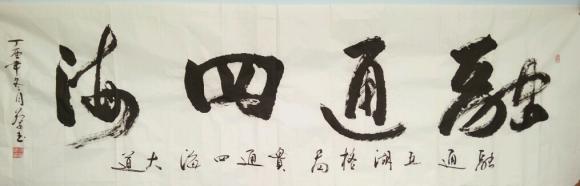 融通四海
融通五湖格局貫通四海大道
丁酉年冬月